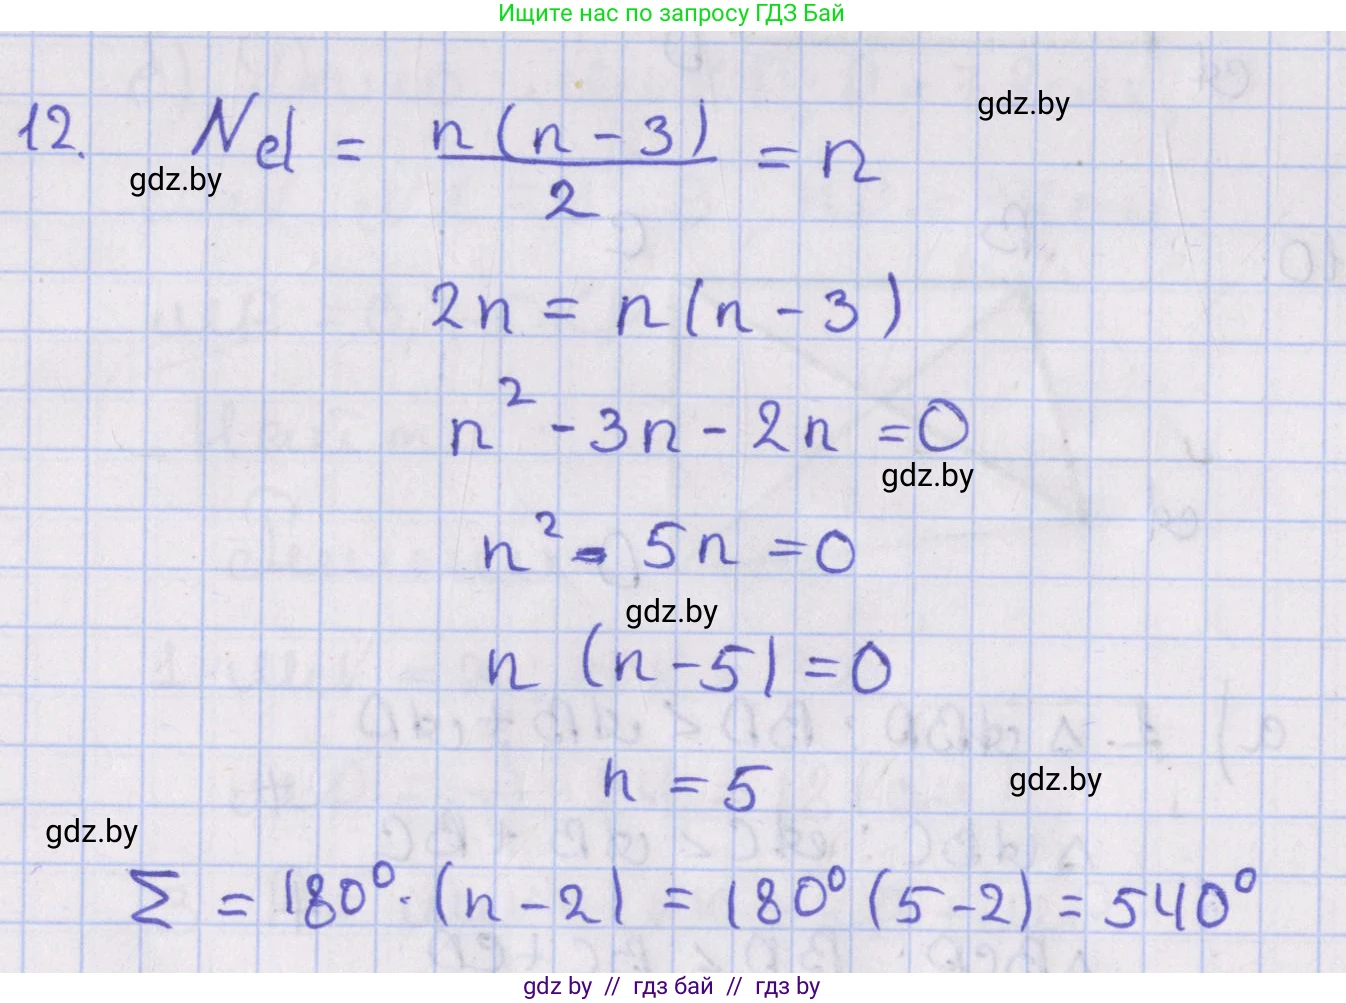 Ищите нас по запросу ГДЗ Бай
gdz.by
12. Nd = n(n-3)/2 = n
gdz.by
2n = n(n-3)
n² - 3n - 2n = 0
gdz.by
n² - 5n = 0
gdz.by
n (n-5) = 0
n = 5
gdz.by
gdz.by
Σ = 180°·(n-2) = 180°(5-2) = 540°
gdz by // гдз бай // гдз by